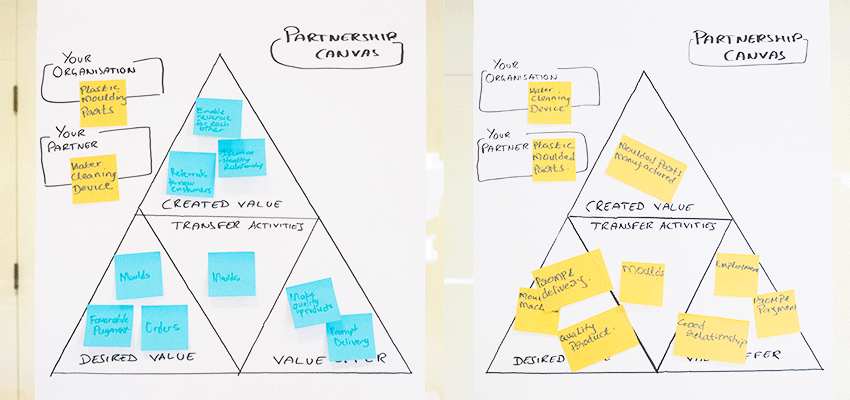 PARTNERSHIP
CANVAS
YOUR
ORGANISATION
Plastic
Moulding
Parts
YOUR
PARTNER
Water
Cleaning
Device
Enable
revenue
for each
other
Relationship
Referrals
to new
customers
CREATED VALUE
TRANSFER ACTIVITIES
Moulds
Favorable
Payment
Orders
Moulds
Make
quality
products
Prompt
Delivery
DESIRED VALUE
VALUE OFFER
PARTNERSHIP
CANVAS
YOUR
ORGANISATION
Water
Cleaning
Device
YOUR
PARTNER
Plastic
Moulded
Parts.
Moulded Parts
Manufactured
CREATED VALUE
TRANSFER ACTIVITIES
Prompt
delivery.
Mach
Quality
Product.
Moulds
Employment
Prompt
Payment
Good
Relationship
DESIRED